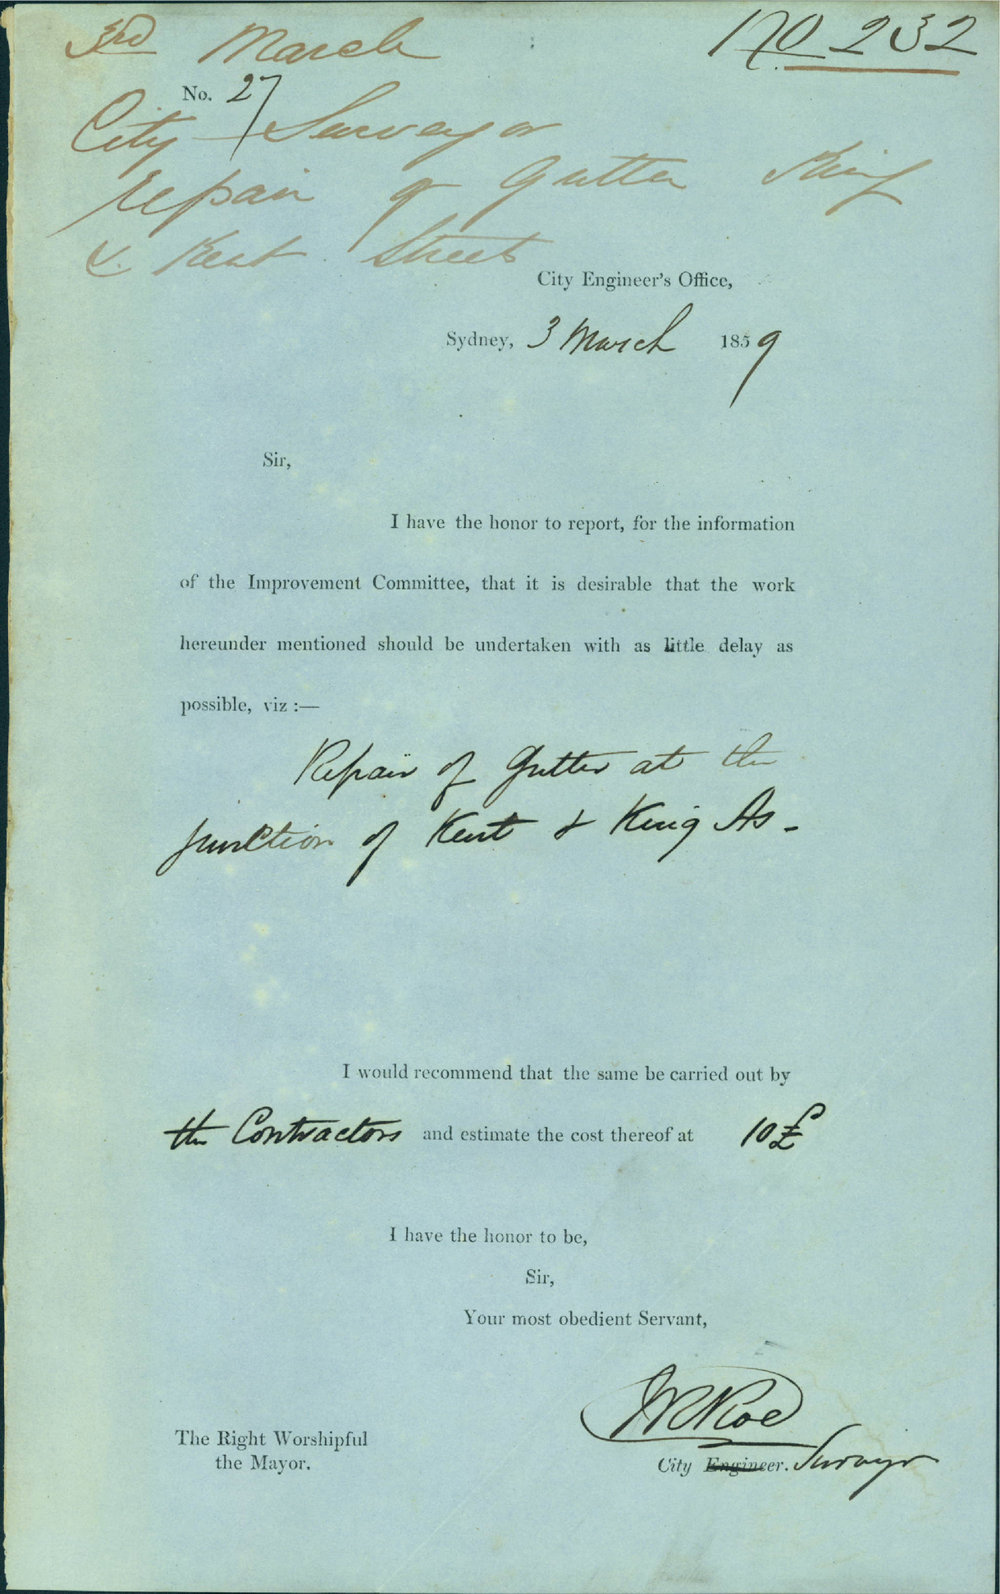 3rd March
No 232
No. 27
City Surveyor
repair of Gutter King
& Kent Streets
City Engineer's Office,
Sydney, 3 March 1859
Sir,
I have the honor to report, for the information
of the Improvement Committee, that it is desirable that the work
hereunder mentioned should be undertaken with as little delay as
possible, viz :—
Repair of Gutter at the
junction of Kent & King Sts -
I would recommend that the same be carried out by
the Contractors and estimate the cost thereof at 10£
I have the honor to be,
Sir,
Your most obedient Servant,
The Right Worshipful
the Mayor.
City Engineer. Surveyor